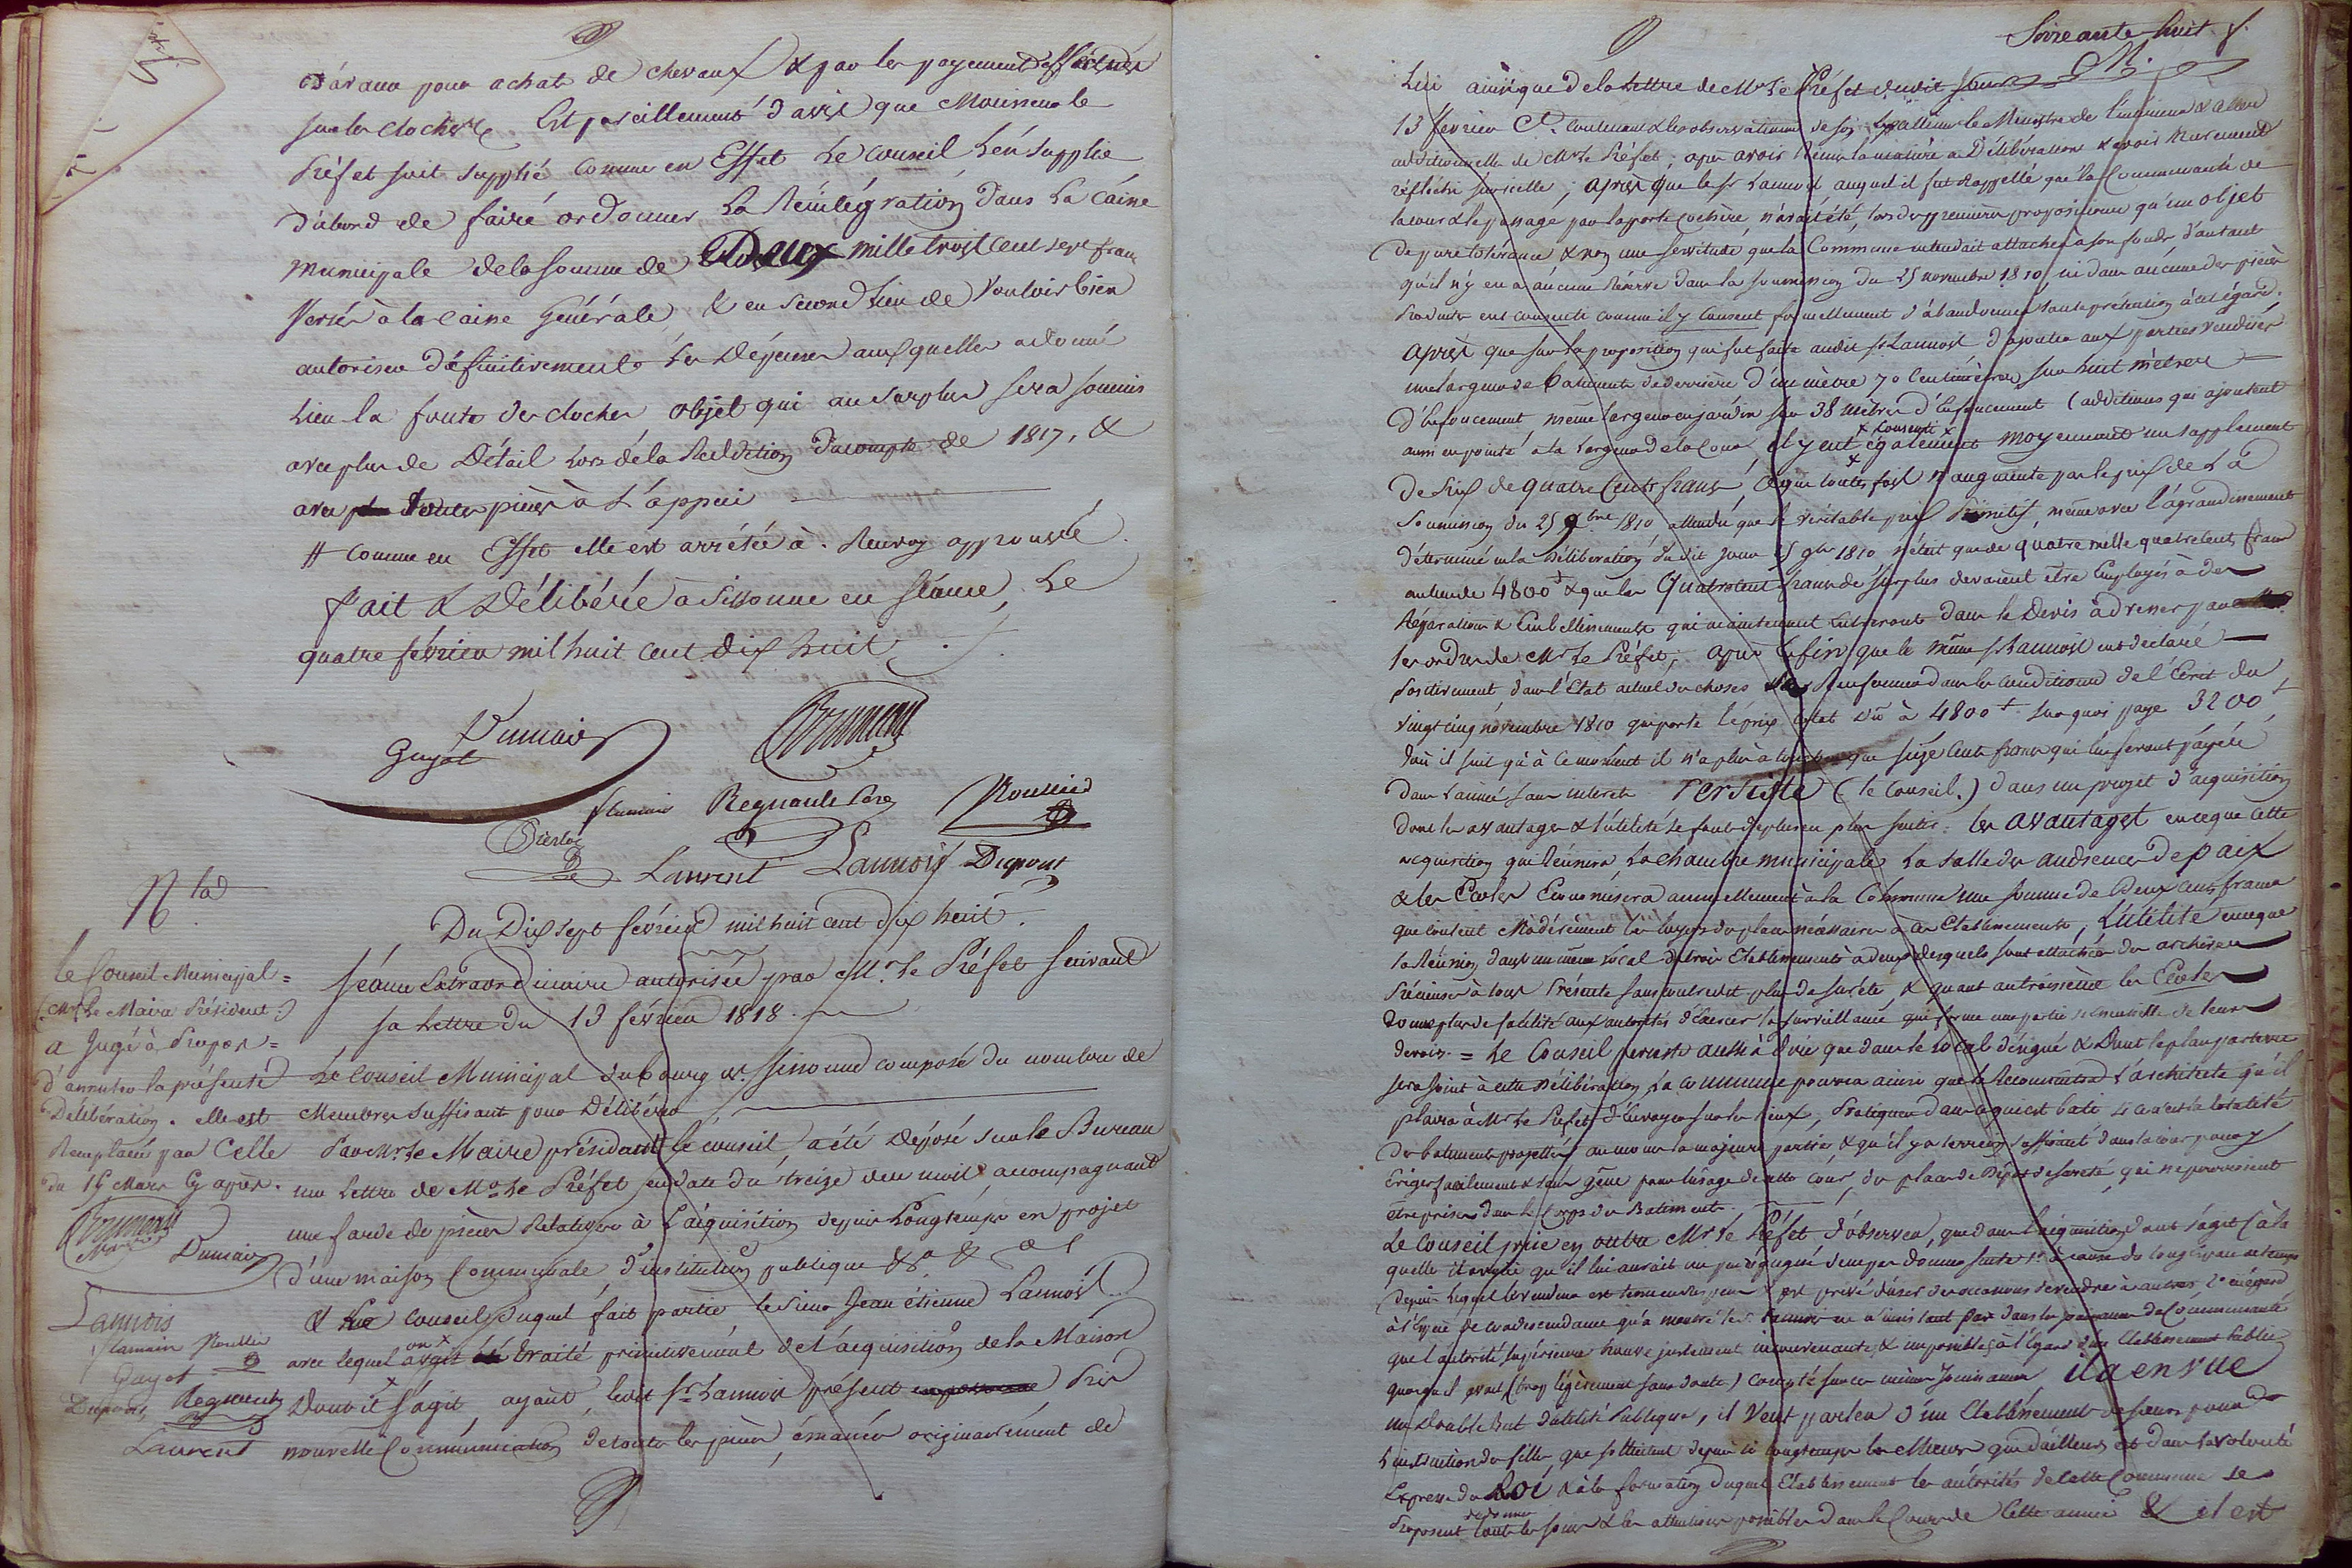 pour achat de chevaux & par les payements effectués
sur les cloches Est pareillement d'avis que Monsieur le
Préfet soit supplié comme en Effet Le Conseil L'en supplie
d'abord de faire ordonner La Réintégration dans La Caisse
municipale de la somme de Deux mille trois cent sept francs
Versés à la Caisse Générale, & en second Lieu de Vouloir bien
autoriser définitivement Les Dépenses auxquelles a donné
Lieu la fonte des cloches objet qui au surplus sera soumis
avec plus de Détail Lors de la Reddition du compte de 1817, &
avec toutes pièces à L'appui
# comme en Effet elle est arrêtée à. Renvoy approuvé.
fait & Délibéré à Sissonne en séance, Le
quatre février mil huit cent dix huit
Dumain
Guyot
flamain Regnault Roussin
Laurent Lannois Dupont
Nta
Du Dix sept février mil huit cent dix huit.
Séance Extraordinaire autorisée par Mr. le Préfet suivant
sa Lettre du 13 février 1818.
le Conseil Municipal =
(Mr. Le Maire Président)
a Jugé à Propos =
d'annuler la présente
Délibération. elle est
Remplacée par Celle
du 15 Mars Cy après.
Dumain
Lannois
flamain
Guyot
Dupont Regnault
Laurent
Le Conseil Municipal du bourg de Sissonne composé du nombre de
Membres suffisant pour Délibérer
Par Mr. Le Maire présidant le conseil, a été Déposé sur le Bureau
une Lettre de Mr. Le Préfet en date du treize de ce mois accompagnant
une farde de pièces Relatives à L'acquisition depuis Longtemps en projet
d'une maison Communale d'institution publique &a &
& Le Conseil Duquel fait partie le sieur Jean étienne Lannois
avec lequel on avait traité primitivement de L'acquisition de la Maison
Dont il s'agit, ayant, ledit Sr. Lannois présent Pris
nouvelle Communication de toutes les pièces, émanées originairement de
Soixante huit
Lui ainsi que de la Lettre de Mr. Le Préfet dudit jour
13 février Ct. contenant les observations de son Excellence le Ministre de l'intérieur
additionnelle de Mr. le Préfet; après avoir la matière en Délibération & avoir murement
réfléchi sur icelle; après que le Sr. Lannois auquel il fut Rappellé que la Communauté de
la cour & le passage par la porte Cochère n'avait été, lors des premières propositions qu'un objet
de pure tolérance & non une servitude que la Commune entendait attacher à son fonds, d'autant
qu'il n'y en a aucune Réserve dans la soumission du 25 novembre 1810, ni dans aucune des pièces
Produites eut consenti comme il y Consent formellement d'abandonner toute prétention à cet égard.
après que sur la proposition qui fut faite audit Sr. Lannois d'ajouter aux parties vendues
une largeur de batiments de derrière d'un mètre 70 Centimètres sur huit mètres
d'Enfoncement, même largeur en jardin sur 38 mètres d'Enfoncement (additions qui ajoutent
aussi en pointe à la Largeur de la Cour il y eut également consenti moyennant un supplement
de Prix de quatre Cents francs, ce qui toutes fois n'augmente pas le prix de La
Soumission du 25 9bre 1810 attendu que le véritable prix Primitif, même avec l'agrandissement
déterminé en la Délibération dudit jour 25 9bre 1810 n'était que de quatre mille quatre cents francs
au lieu de 4800 & que les Quatre cent francs de surplus devaient être Employés à des
Réparations & Embellissements qui maintenant Entreront dans le Devis à dresser par
les ordres de Mr. Le Préfet; après Enfin que le même Sr. Lannois eut déclaré
Positivement, dans l'Etat actuel des choses se renfermer dans les conditions de l'Ecrit du
Vingt cinq novembre 1810 qui porte le prix total dû à 4800 sur quoi payé 3200
D'où il suit qu'à ce moment il n'a plus à toucher que seize Cents francs qui lui seront payés
dans L'année sans interets Persiste (le Conseil.) dans un projet d'acquisition
dont les avantages & L'utilité se font de plus en plus sentir: les avantages en ce que cette
acquisition qui Réunira La chambre municipale, La Salle des audiences de paix
& les Ecoles Economisera annuellement à la Commune une somme de Deux cents francs
que coutent Modérément les loyers des places nécessaires à ces Etablissements, L'utilité en ce que
la Réunion dans un même local de trois Etablissements à deux desquels sont attachées des archives
Précieuses à tous Présente sans contredit plus de sureté, & quant au troisième les Ecoles
Donne plus de facilité aux autorités d'Exercer la surveillance qui forme une partie essentielle de leurs
devoirs. = Le Conseil persiste aussi à Dire que dans le Local désigné & Dont le plan
sera joint à cette Délibération, La commune pourra ainsi que le Reconnaitra L'architecte qu'il
plaira à Mr. Le Préfet d'Envoyer sur les Lieux, Pratiquer dans ce qui est bati si ce n'est la totalité
des batiments projettés au moins la majeure partie, & qu'il y a terrein suffisant dans la cour pour y
Eriger facilement & sans gêne pour l'usage de cette Cour, des places de Dépot de sureté, qui ne pourroient
être prises dans le Corps des Batiments.
Le Conseil prie en outre Mr. Le Préfet d'observer, que dans l'acquisition dont s'agit (à la
quelle il avoue qu'il lui aurait un peu répugné de ne pas donner suite 1°. à cause du long espace de temps
depuis lequel le vendeur est tenu en suspens & est privé d'user des occasions de vendre à autres, 2° eu égard
à l'Espèce de condescendance qu'a montré le Sr. Lannois en n'insistant pas dans les de Communauté
que l'autorité supérieure trouve justement inconvenantes & impossibles à l'égard d'un Etablissement Public
quoiqu'il avait (trop légèrement sans doute) compté sur ces mêmes Jouissances il a en vue
un double But d'utilité Publique, il Veut parler d'un Etablissement de sœurs pour
L'instruction des filles, que sollicitent depuis si longtemps les Mœurs qui d'ailleurs est dans la volonté
Expresse du Roi & à la formation duquel Etablissement les autorités de cette Commune se
Proposent de donner tous les soins & les attentions possibles dans le Cours de Cette année & il est